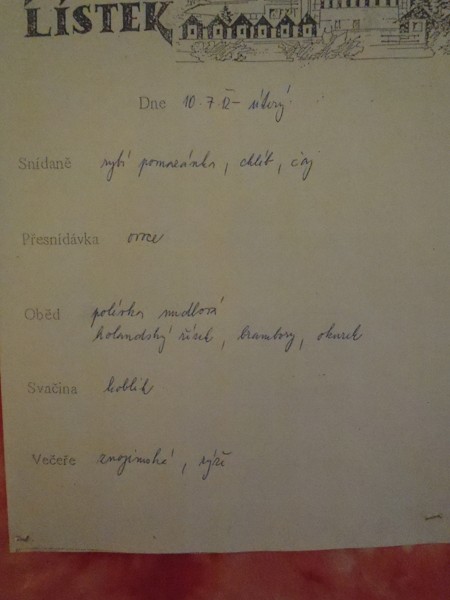 LÍSTEK
Dne 10.7.12 - úterý
Snídaně rybí pomazánka, chléb, čaj
Přesnídávka ovoce
Oběd polévka nudlová
holandský řízek, brambory, okurek
Svačina koblih
Večeře znojemská, rýže